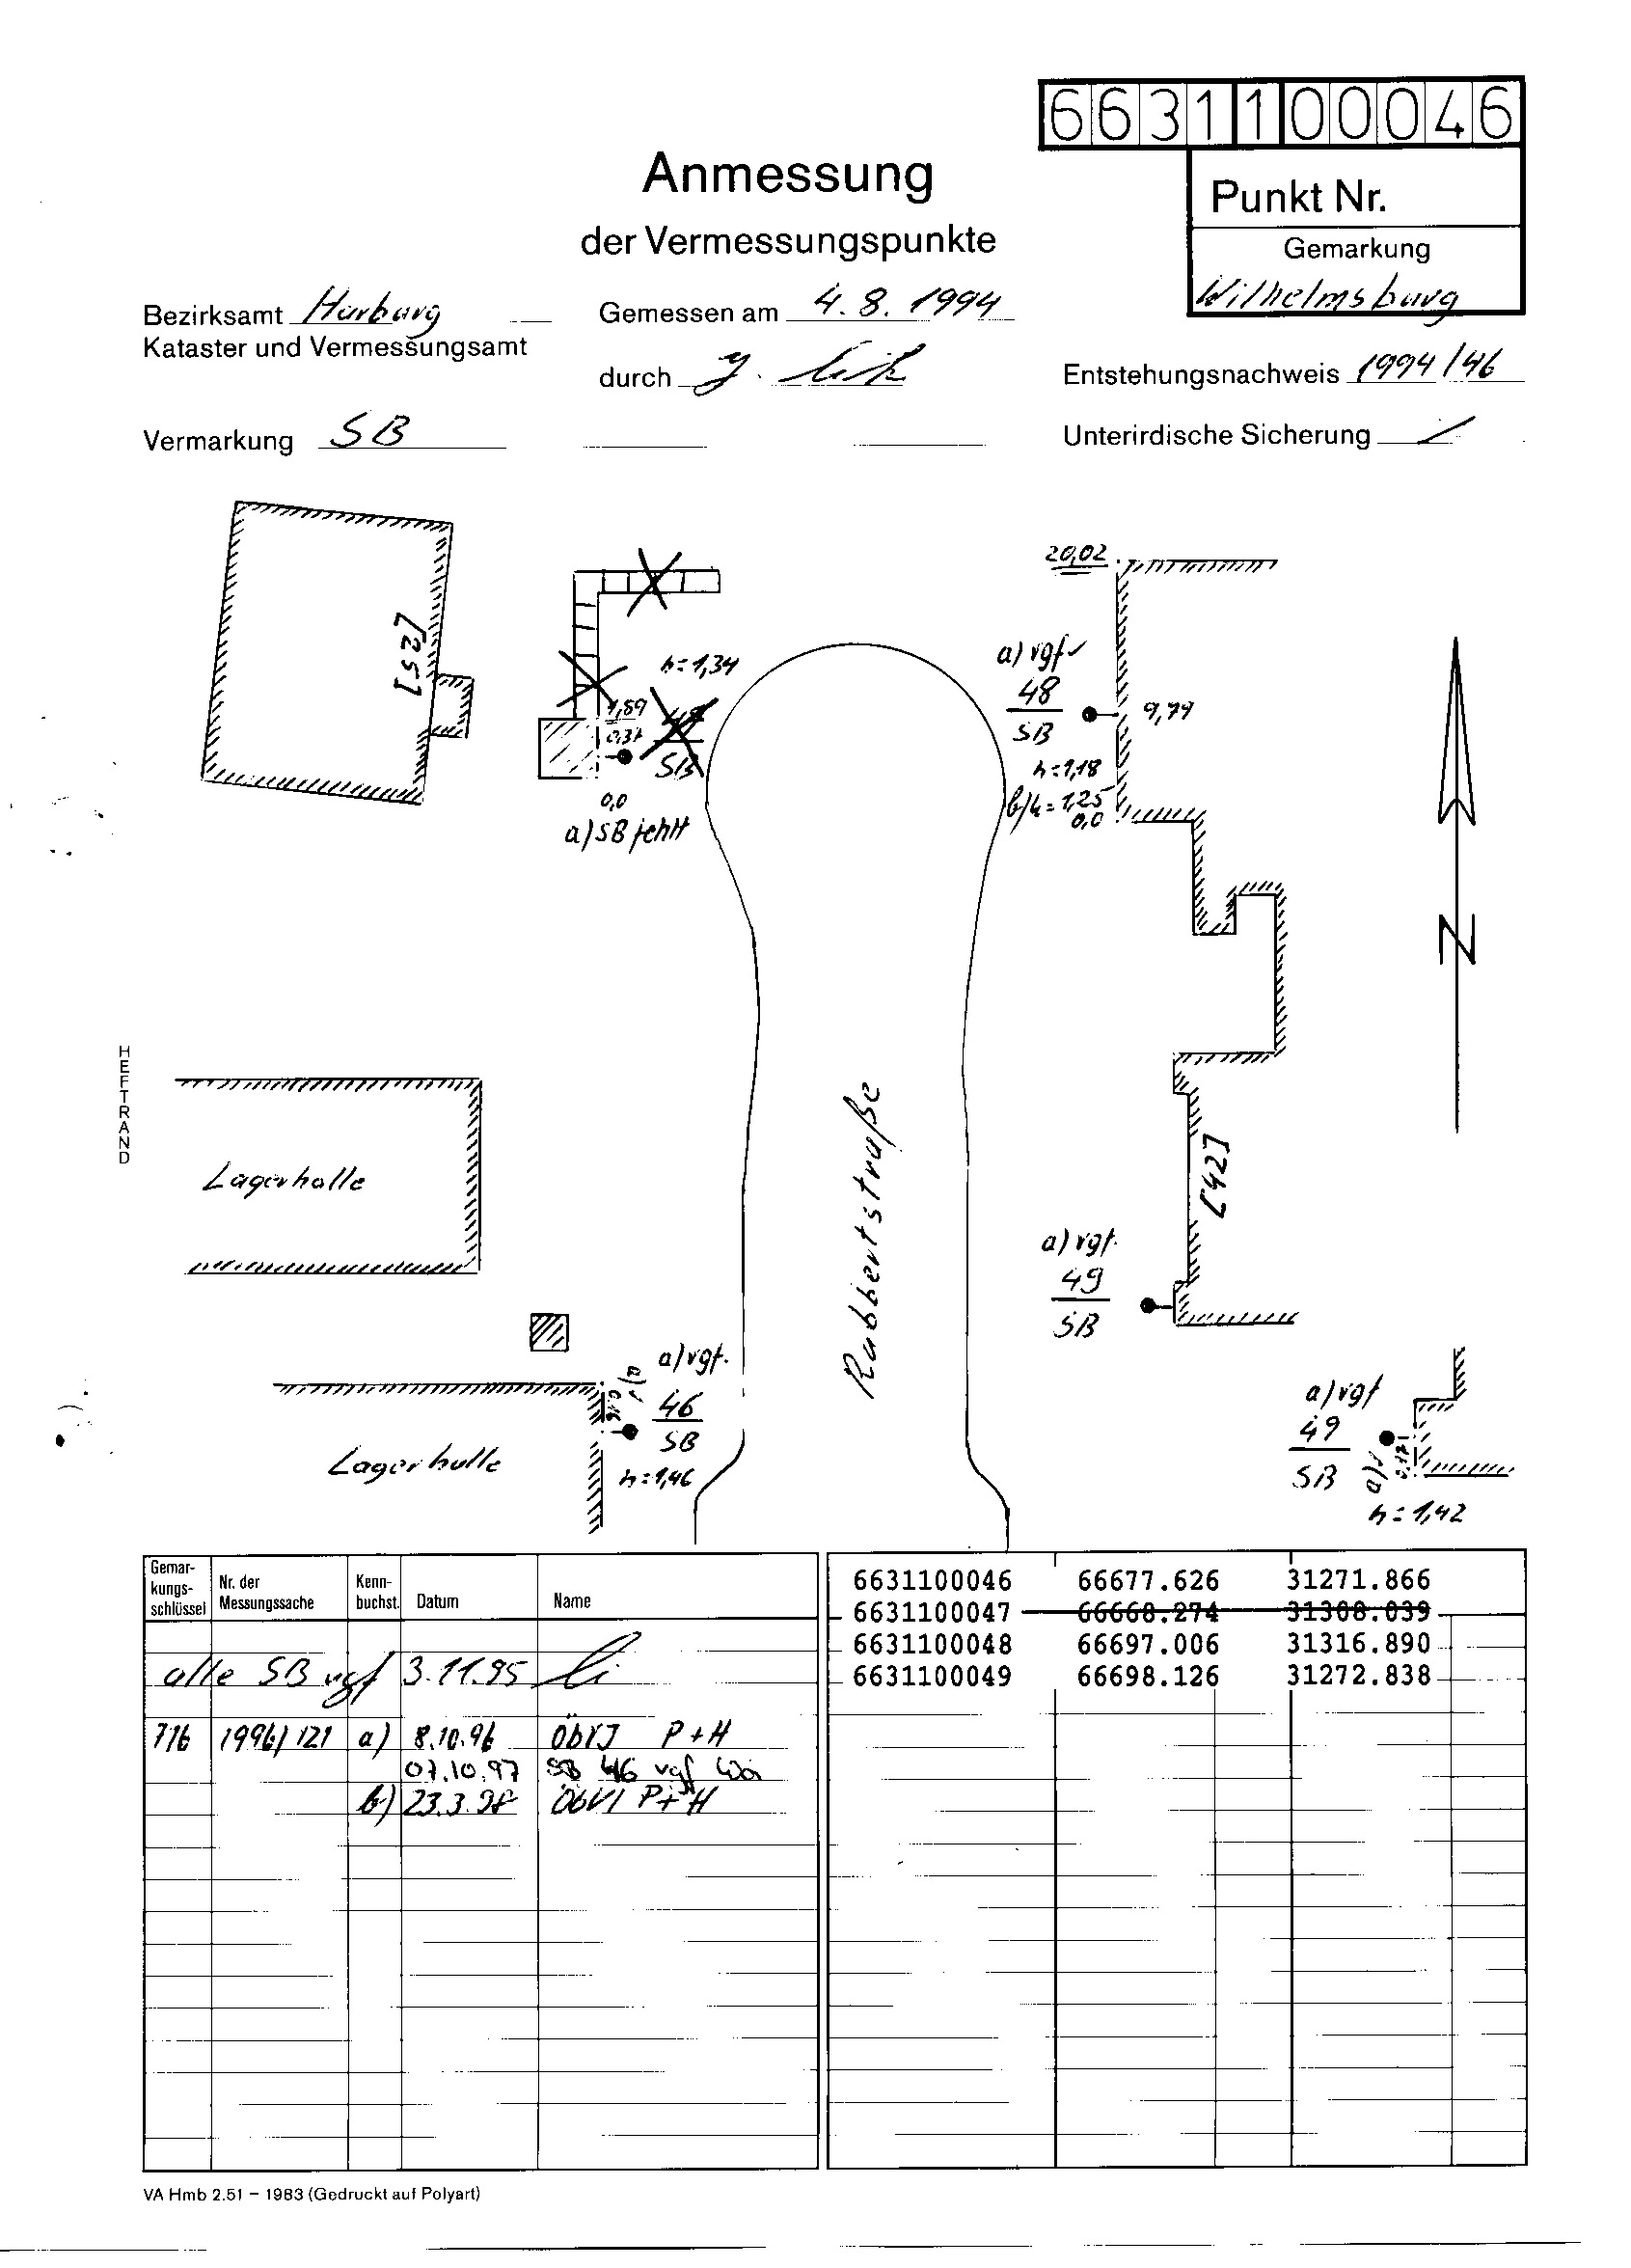 6631100046
Anmessung
der Vermessungspunkte
Punkt Nr.
Gemarkung
Wilhelmsburg
Bezirksamt Harburg
Kataster und Vermessungsamt
Gemessen am 4.8.1994
durch J.
Entstehungsnachweis 1994/46
Vermarkung SB
Unterirdische Sicherung /
[25]
h=1,34
1,89
0,37
SB
0,0
a) SB fehlt
20,02
a) vgf
48
SB
9,79
h=1,18
b) h=1,25
0,0
N
HEFTRAND
Lagerhalle
Rubbertstraße
[42]
a) vgf.
49
SB
a) vgf.
46
SB
h=1,46
Lagerhalle
a) vgf
49
SB
h=1,42
Gemar-
kungs-
schlüssel
Nr. der
Messungssache
Kenn-
buchst.
Datum
Name
alle SB vgf 3.11.95 Li
716 1996/121 a) 8.10.96 ÖbVI P+H
07.10.97 SB 46 vgf Wä
b) 23.3.98 ÖbVI P+H
6631100046 66677.626 31271.866
6631100047 66668.274 31308.039
6631100048 66697.006 31316.890
6631100049 66698.126 31272.838
VA Hmb 2.51 – 1983 (Gedruckt auf Polyart)